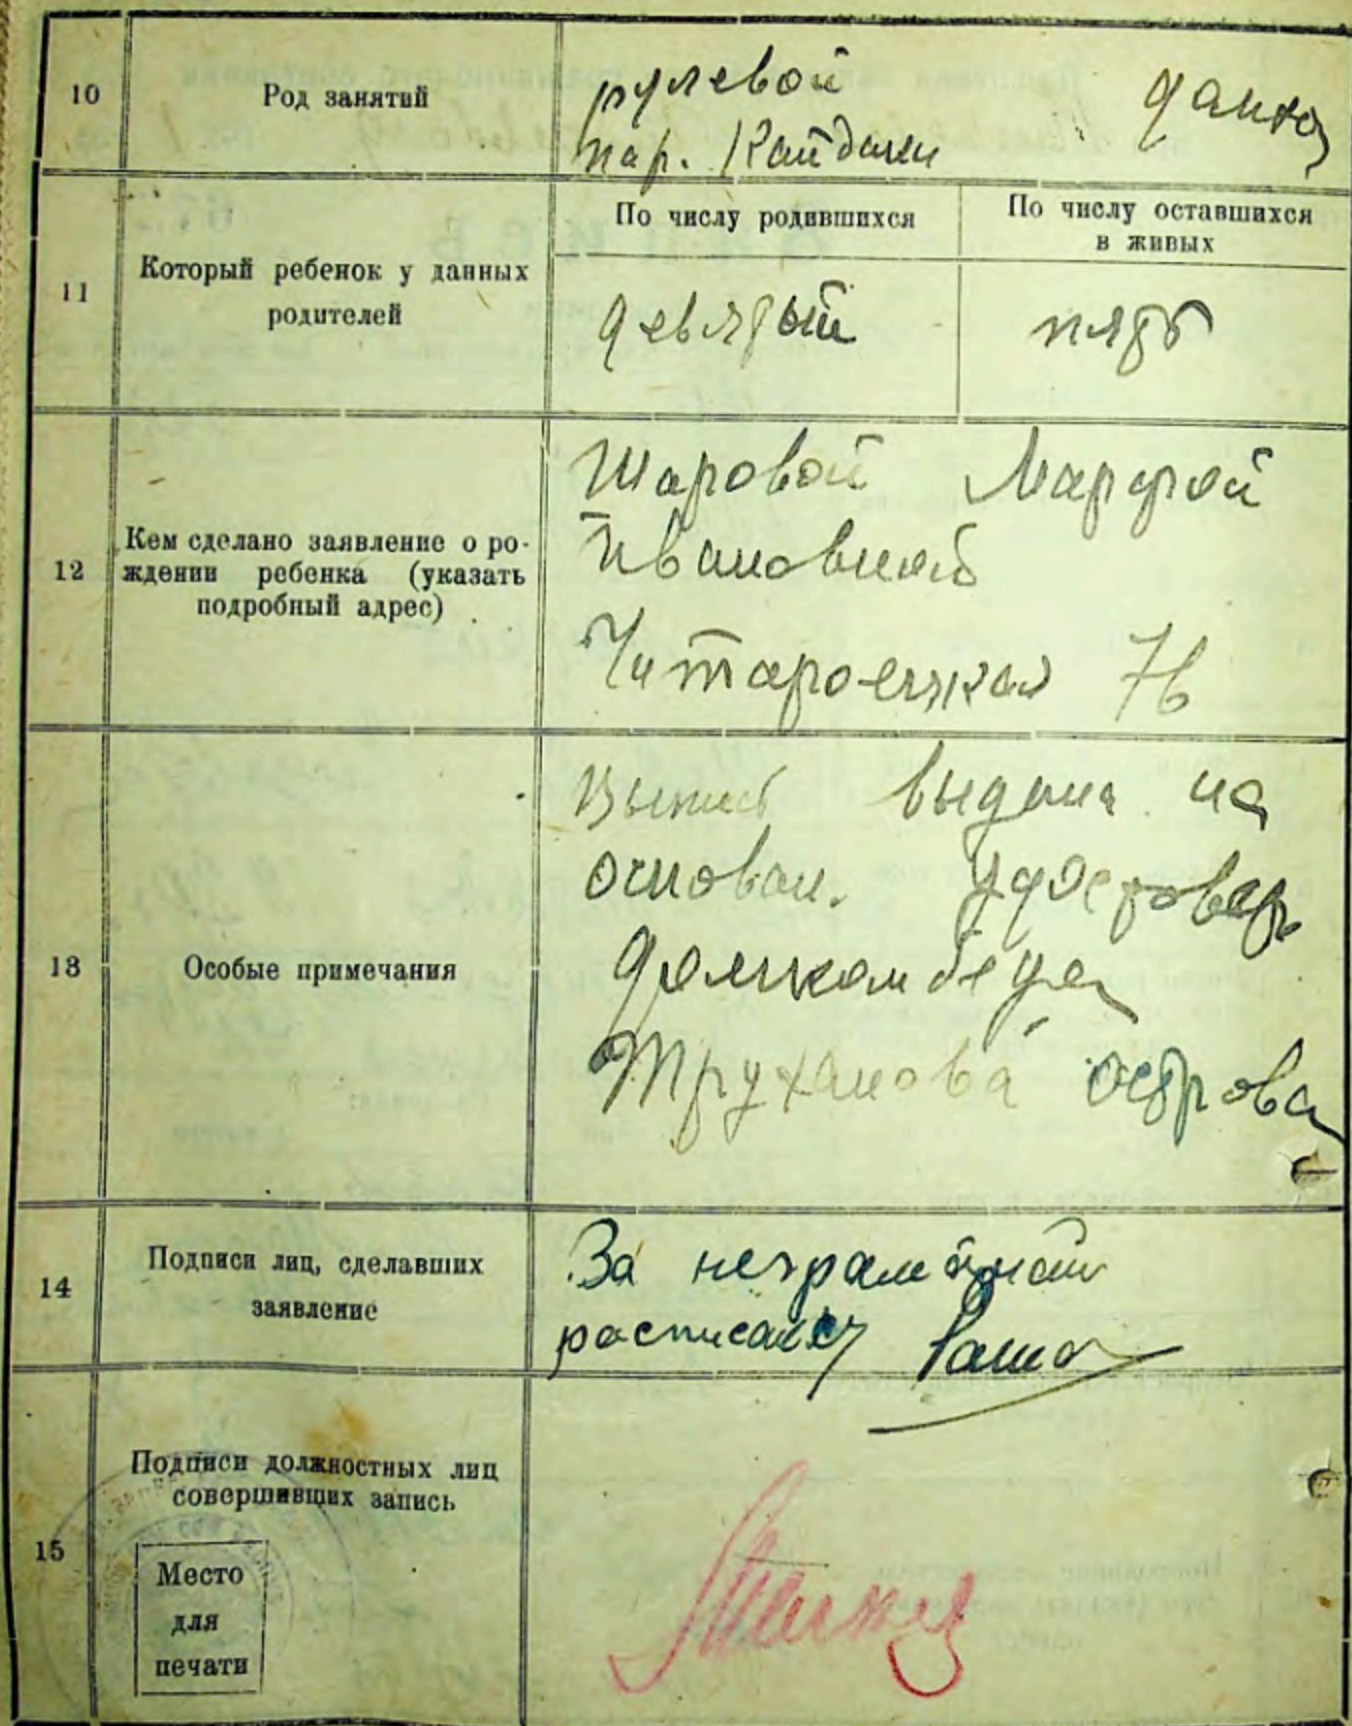 10 Род занятий рулевой
пар. Кайдаки
11 Который ребенок у данных
родителей
По числу родившихся
По числу оставшихся
в живых
девятый
пять
12 Кем сделано заявление о ро-
ждении ребенка (указать
подробный адрес)
Шаровой Марфой
Ивановной
7б
13 Особые примечания
выдана на
основан. удостовер.
домкомбеда
Труханова острова
14 Подписи лиц, сделавших
заявление
За неграмотной
15 Подписи должностных лиц
совершивших запись
Место
для
печати